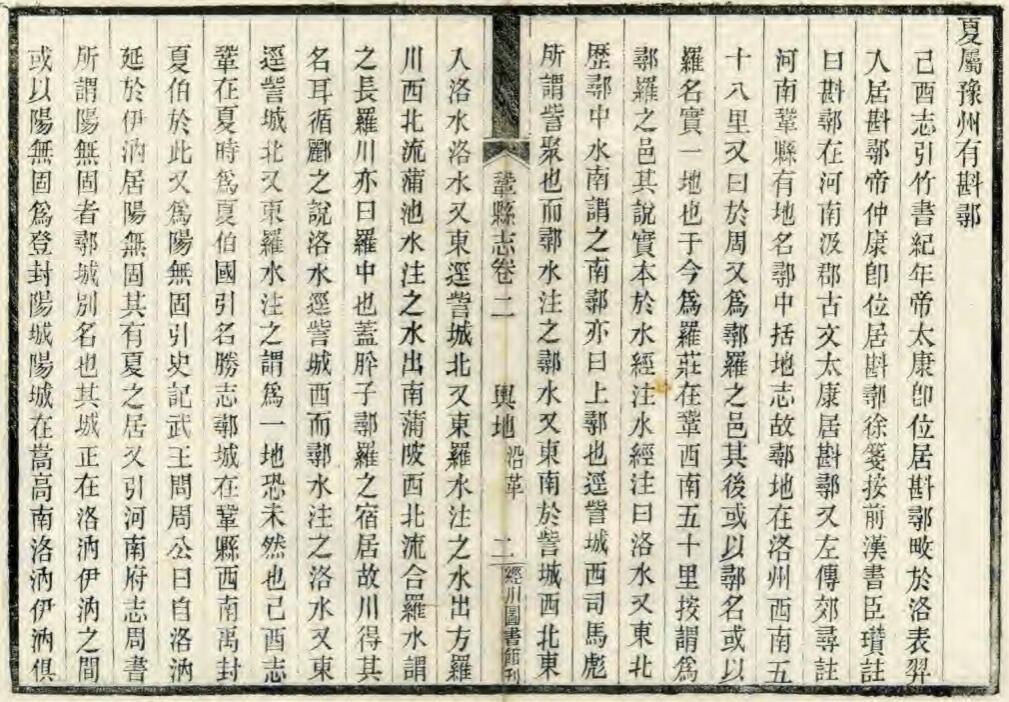 夏屬豫州有斟鄩
己酉志引竹書紀年帝太康卽位居斟鄩畋於洛表羿
入居斟鄩帝仲康卽位居斟鄩徐箋按前漢書臣瓚註
曰斟鄩在河南汲郡古文太康居斟鄩又左傳郊尋註
河南鞏縣有地名鄩中括地志故鄩地在洛州西南五
十八里又曰於周又爲鄩羅之邑其後或以鄩名或以
羅名實一地也于今爲羅莊在鞏西南五十里按謂爲
鄩羅之邑其說實本於水經注水經注曰洛水又東北
歷鄩中水南謂之南鄩亦曰上鄩也逕訾城西司馬彪
所謂訾聚也而鄩水注之鄩水又東南於訾城西北東
鞏縣志卷二 輿地 沿革 二 經川圖書館刊
入洛水洛水又東逕訾城北又東羅水注之水出方羅
川西北流蒲池水注之水出南蒲陂西北流合羅水謂
之長羅川亦曰羅中也蓋肸子鄩羅之宿居故川得其
名耳循酈之說洛水逕訾城西而鄩水注之洛水又東
逕訾城北又東羅水注之謂爲一地恐未然也己酉志
鞏在夏時爲夏伯國引名勝志鄩城在鞏縣西南禹封
夏伯於此又爲陽無固引史記武王問周公曰自洛汭
延於伊汭居陽無固其有夏之居又引河南府志周書
所謂陽無固者鄩城別名也其城正在洛汭伊汭之間
或以陽無固爲登封陽城陽城在嵩高南洛汭伊汭俱